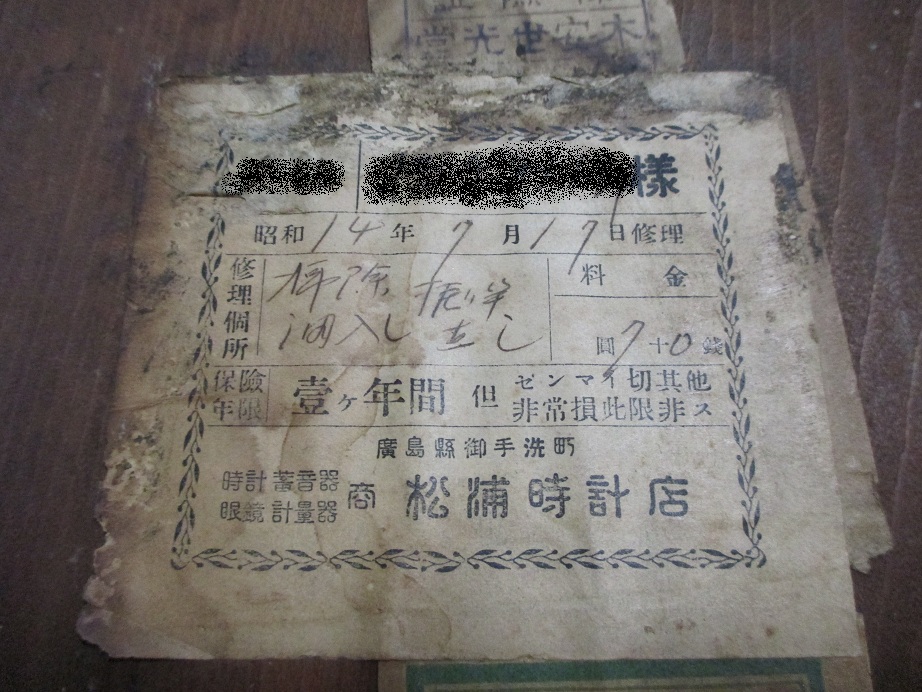 木安世光堂
様
昭和14年7月17日修理
修理個所
掃除
油入し 直し
料金
圓7十0錢
保險年限
壹ヶ年間
但
ゼンマイ切其他
非常損此限非ス
廣島縣御手洗町
時計蓄音器
眼鏡計量器
商
松浦時計店